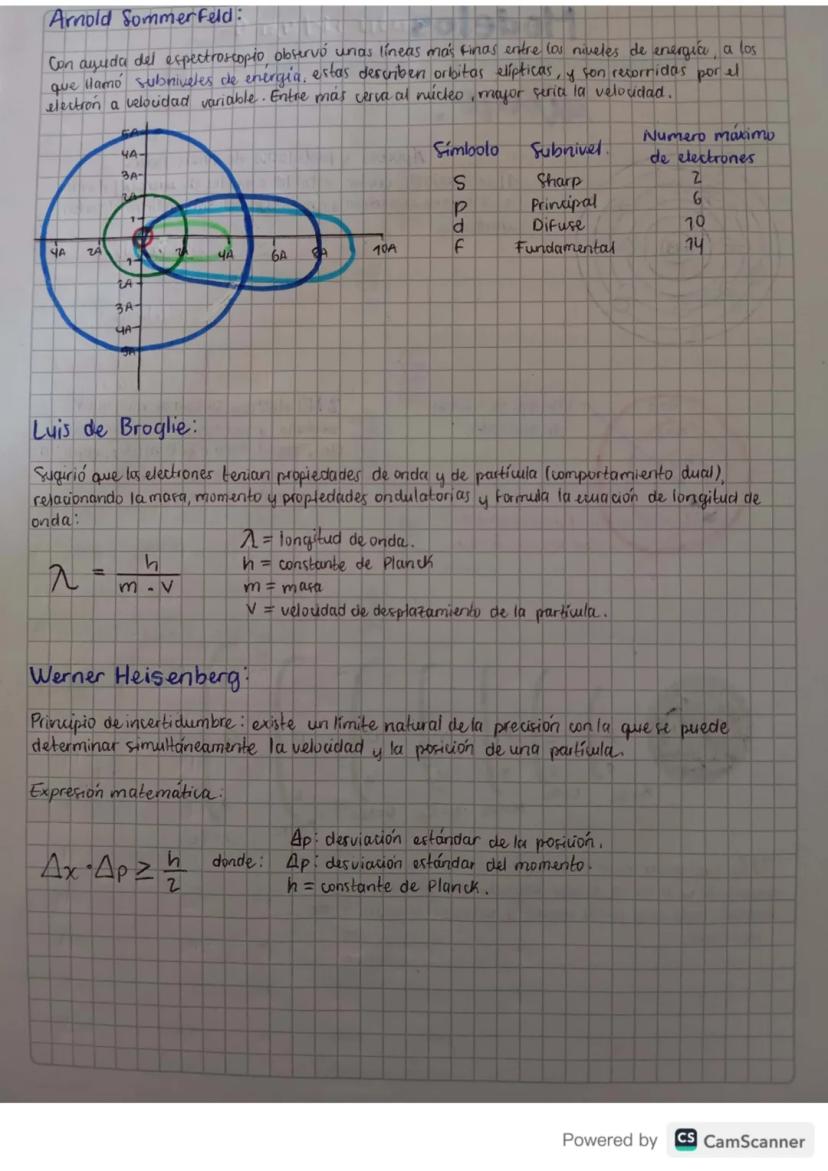 Arnold Sommerfeld:
Con ayuda del espectroscopio, observó unas líneas más finas entre los niveles de energía, a los
que llamó subniveles de energía, estas describen orbitas elípticas, y son recorridas por el
electrón a velocidad variable. Entre más cerca al núcleo, mayor seria la velocidad.
5A
4A
3A
2A
1
4A 2A 2A 4A 6A 8A 10A
1
2A
3A
4A
5A
Símbolo Subnivel. Numero máximo
de electrones
S Sharp 2
p Principal 6
d Difuse 10
f Fundamental 14
Luis de Broglie:
Sugirió que los electrones tenian propiedades de onda y de partícula (comportamiento dual),
relacionando la masa, momento y propiedades ondulatorias y formula la ecuación de longitud de
onda:
λ = h / m · v
λ = longitud de onda.
h = constante de Planck
m = masa
v = velocidad de desplazamiento de la partícula.
Werner Heisenberg:
Principio de incertidumbre: existe un límite natural de la precisión con la que se puede
determinar simultáneamente la velocidad y la posición de una partícula.
Expresión matemática:
Δx · Δp ≥ h / 2 donde:
Δp: desviación estándar de la posición.
Δp: desviación estándar del momento.
h = constante de Planck.
Powered by CS CamScanner